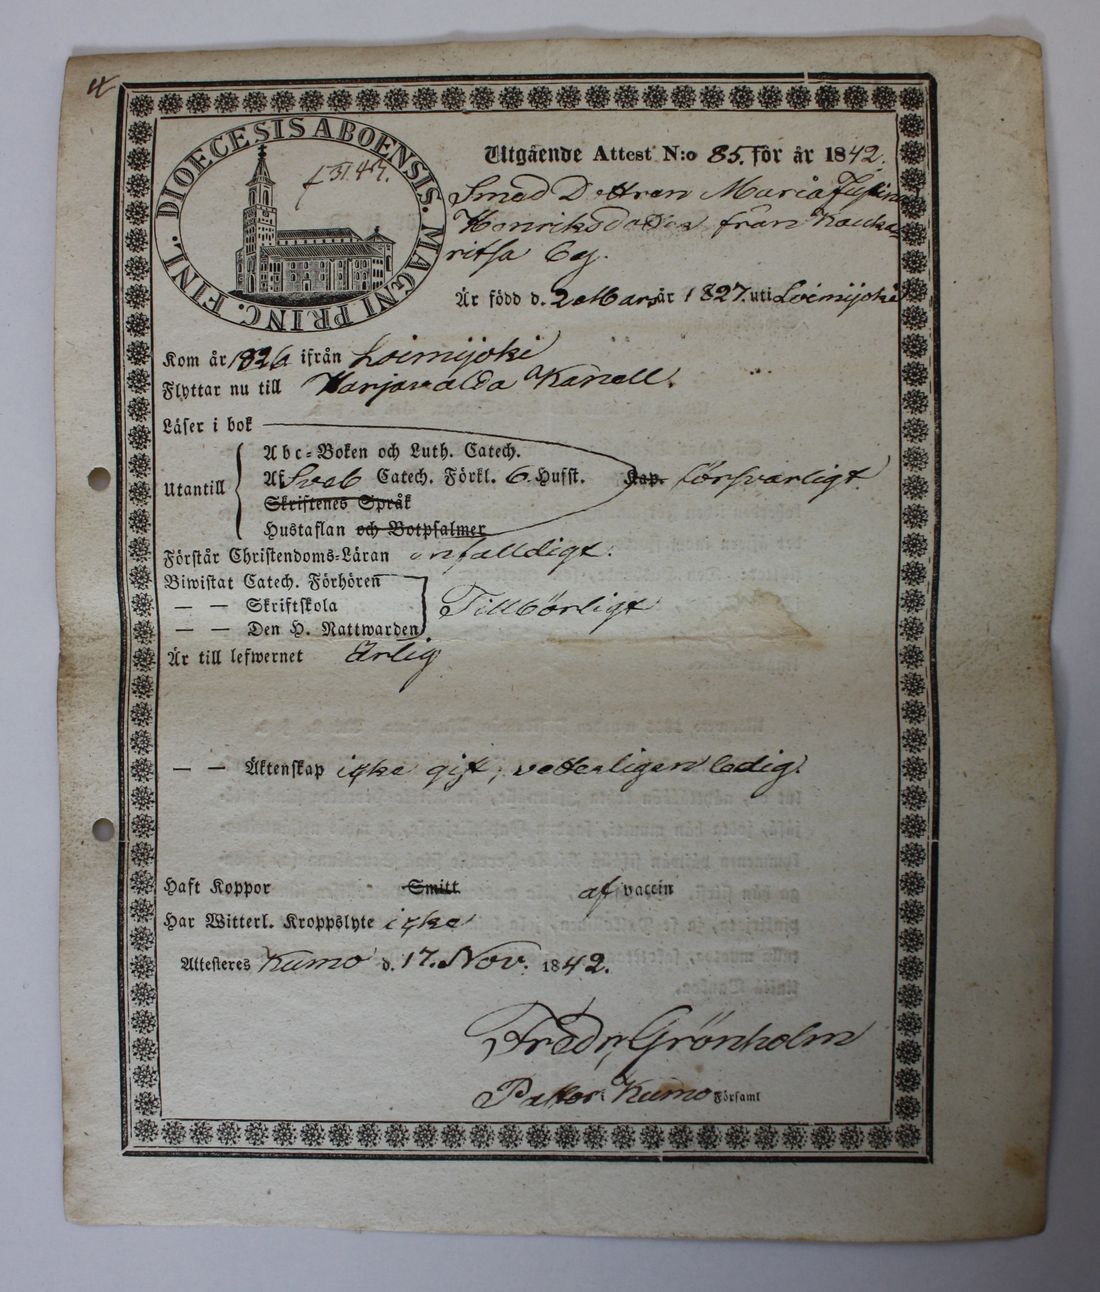 4
DIOECESIS ABOENSIS. MAGNI PRINC. FINL.
Utgående Attest N:o 85. för år 1842.
Smed Dottren Maria
Henriksdotter från Kauka-
ritsa by.
Är född d. 2 Mars år 1827. uti Loimijoki
Kom år 1826 ifrån Loimijoki
Flyttar nu till Harjavalda Kapell.
Läser i bok
Utantill
Abc-Boken och Luth. Catech.
Af Sveb Catech. Förkl. 6 Hufst. Kap. försvarligt
Skriftenes Språk
Hustaflan och Botpsalmer
Förstår Christendoms-Läran enfalldigt.
Biwistat Catech. Förhören
— — Skriftskola Tillbörligt
— — Den H. Nattwarden
Är till lefwernet Ärlig
— — Äktenskap icke gift, vetterligen ledig.
Haft Koppor Smitt af vaccin
Har Witterl. Kroppslyte icke
Attesteres Kumo d. 17. Nov. 1842.
Fredr. Grönholm
Pastor i Kumo Församl